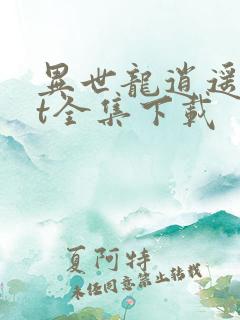 異世龍逍遥
t全集下載
夏阿特
未经同意禁止转载